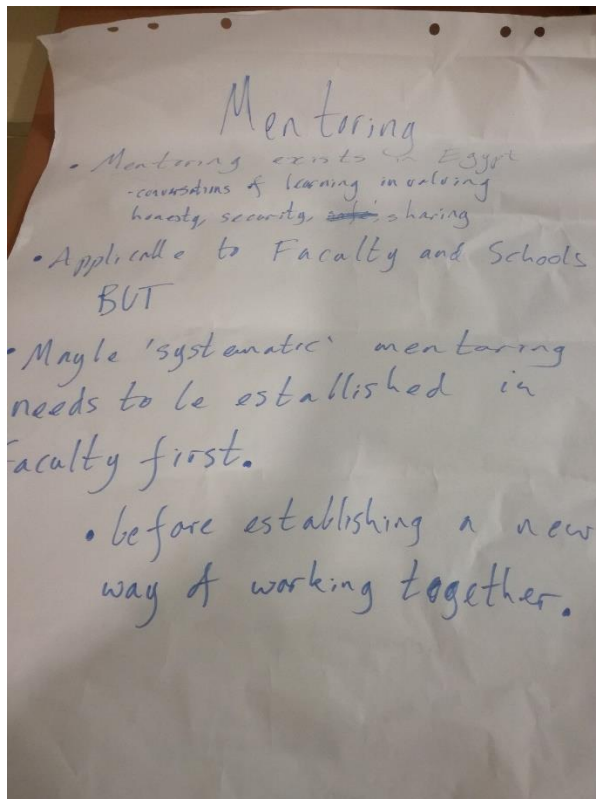 Mentoring
• Mentoring exists in Egypt
- conversations of learning involving
honesty, security, sharing
• Applicable to Faculty and Schools
BUT
• Maybe 'systematic' mentoring
needs to be established in
Faculty first.
• before establishing a new
way of working together.